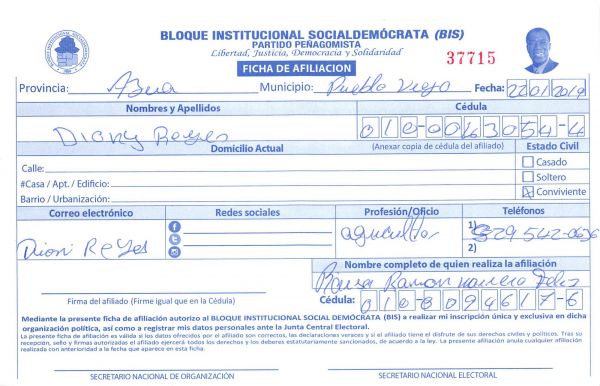 BLOQUE INSTITUCIONAL SOCIALDEMÓCRATA (BIS)
PARTIDO PEÑAGOMISTA
Libertad, Justicia, Democracia y Solidaridad
37715
FICHA DE AFILIACION
Provincia: Azua Municipio: Pueblo Viejo Fecha: 22/01/2019
Nombres y Apellidos Cédula
Diony Reyes 010-0063054-4
Domicilio Actual (Anexar copia de cédula del afiliado) Estado Civil
Calle: Casado
#Casa / Apt. / Edificio: Soltero
Barrio / Urbanización: Conviviente
Correo electrónico Redes sociales Profesión/Oficio Teléfonos
Dioni Reyes 1) 829 542-0636
2)
Nombre completo de quien realiza la afiliación
Ramon
Firma del afiliado (Firme igual que en la Cédula) Cédula: 010-8094617-6
Mediante la presente ficha de afiliación autorizo al BLOQUE INSTITUCIONAL SOCIAL DEMÓCRATA (BIS) a realizar mi inscripción única y exclusiva en dicha
organización política, así como a registrar mis datos personales ante la Junta Central Electoral.
La presente ficha de afiliación es válida si los datos ofrecidos por el afiliado son correctos, las declaraciones veraces y si el afiliado disfruta de sus derechos civiles y políticos. Tras su
recepción, sello y firmas autorizadas el afiliado ejercerá todos los derechos y los deberes estatutariamente sancionados, de acuerdo a la ley. La presente afiliación anula cualquier afiliación
realizada con anterioridad a la fecha que aparece en esta ficha.
SECRETARIO NACIONAL DE ORGANIZACIÓN SECRETARIO NACIONAL ELECTORAL